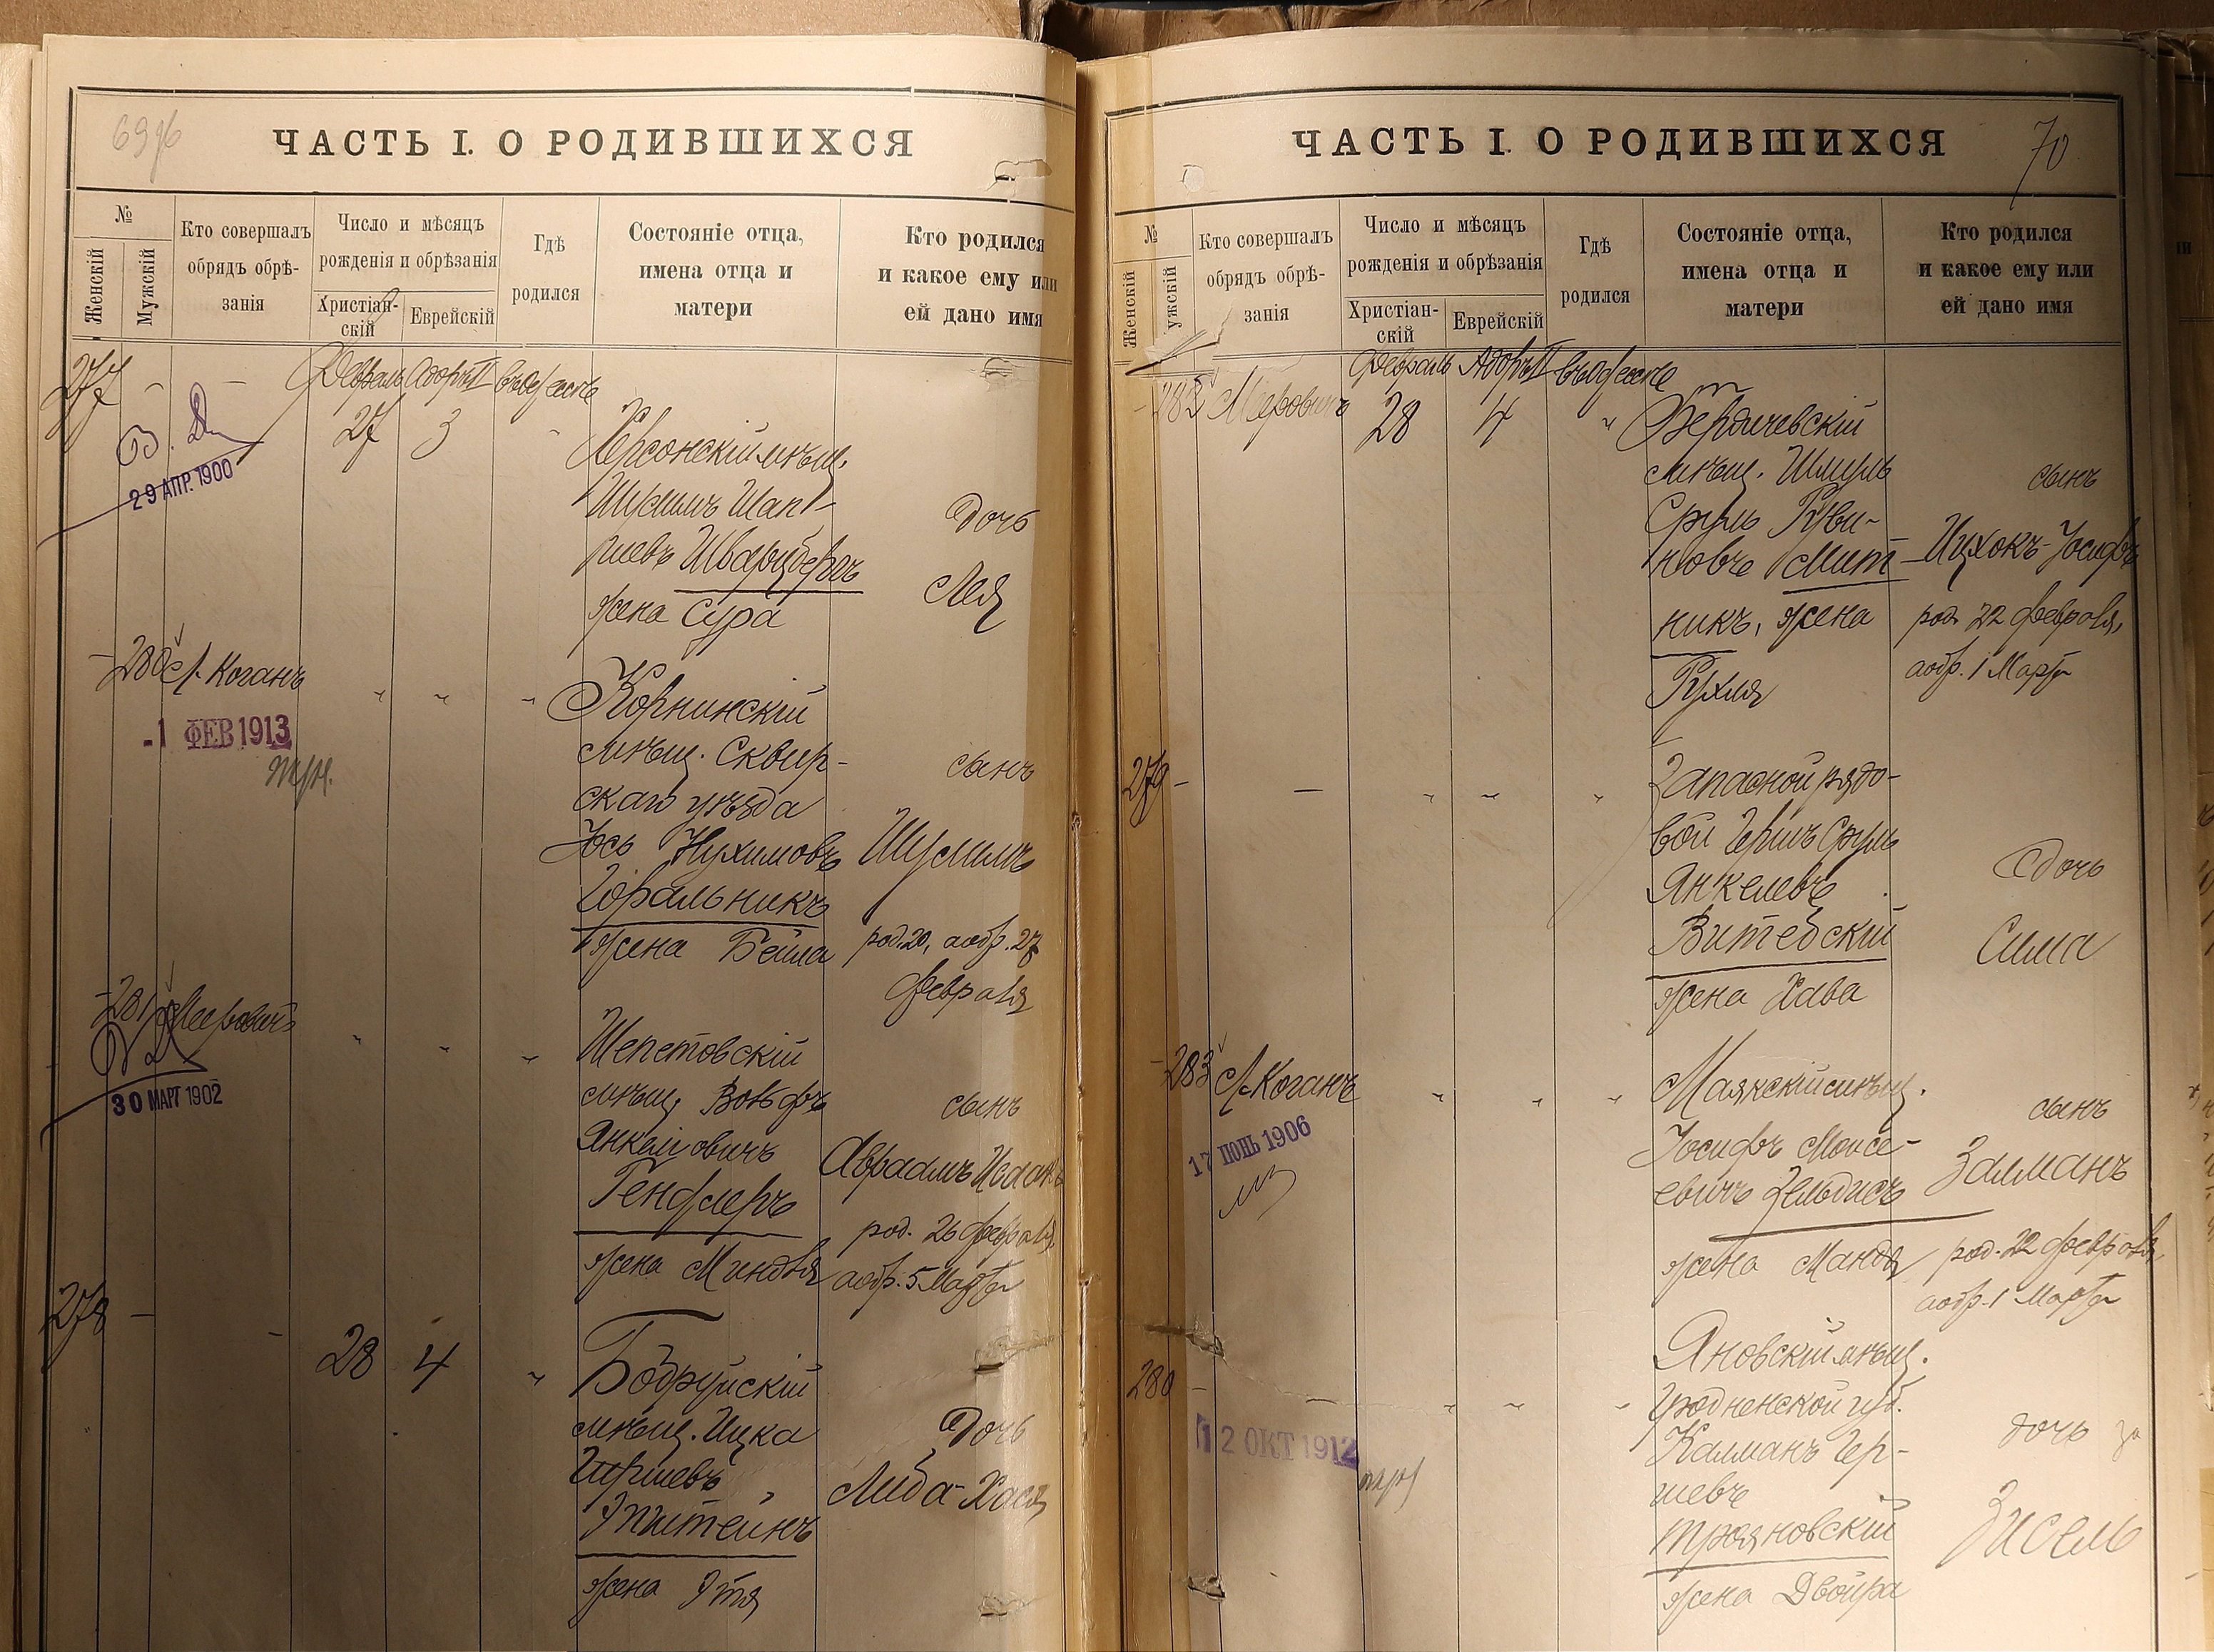 69 об
ЧАСТЬ I. О РОДИВШИХСЯ
№
Женскій
Мужскій
Кто совершалъ
обрядъ обрѣ-
занія
Число и мѣсяцъ
рожденія и обрѣзанія
Христіан-
скій
Еврейскій
Гдѣ
родился
Состояніе отца,
имена отца и
матери
Кто родился
и какое ему или
ей дано имя
277 - - Февраль Адоръ II въ Одессѣ
27 3
29 АПР. 1900
Херсонскій мѣщ.
Шулимъ Шап-
шевъ Шварцбергъ
жена Сура
дочь
Лея
- 280 Л. Коганъ
-1 ФЕВ 1913
Корнинскій
мѣщ. Сквир-
скаго уѣзда
Іось Нухимовъ
Горальникъ
жена Бейла
сынъ
Шулимъ
род. 20, а обр. 27
февраля
- 281 Мееровичъ
30 МАРТ 1902
Шепетовскій
мѣщ. Вольфъ
Янкелiовичъ
Генфлеръ
жена Миндля
сынъ
Авраамъ Исаакъ
род. 26 февраля,
а обр. 5 Марта
278 - -
28 4
Бобруйскій
мѣщ. Ицка
Гиршевъ
Эпштейнъ
жена Этя
дочь
Либа-Хася
70
ЧАСТЬ I. О РОДИВШИХСЯ
№
Женскій
ужскій
Кто совершалъ
обрядъ обрѣ-
занія
Число и мѣсяцъ
рожденія и обрѣзанія
Христіан-
скій
Еврейскій
Гдѣ
родился
Состояніе отца,
имена отца и
матери
Кто родился
и какое ему или
ей дано имя
Февраль Адоръ II въ Одессѣ
- 282 Меровичъ 28 4
Бердичевскій
мѣщ. Шмуль
Сруль Руви-
новъ Мит-
никъ, жена
Рухля
сынъ
Ицхокъ-Іосифъ
род. 22 февраля,
а обр. 1 Марта
279 - -
Запасной рядо-
вой Гершъ Сруль
Янкелевъ
Витебскій
жена Хава
дочь
Сима
- 283 Л. Коганъ
17 ІЮНЬ 1906
Маякскій мѣщ.
Іосифъ Моисе-
евичъ Зельдисъ
жена Мандя
сынъ
Залманъ
род. 22 февраля
а обр. 1 Марта
280 - -
12 ОКТ 1912
Яновскій мѣщ.
Гродненской губ.
Калманъ Гер-
шевъ
Трояновскій
жена Двойра
дочь
Зисель